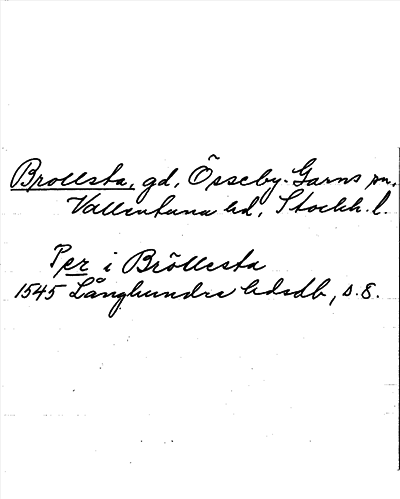 Brollsta, gd, Össeby-Garns sn.
Vallentuna hd, Stockh. l.
Per i Bröllesta
1545 Långhundra hdsdb, s. 8.